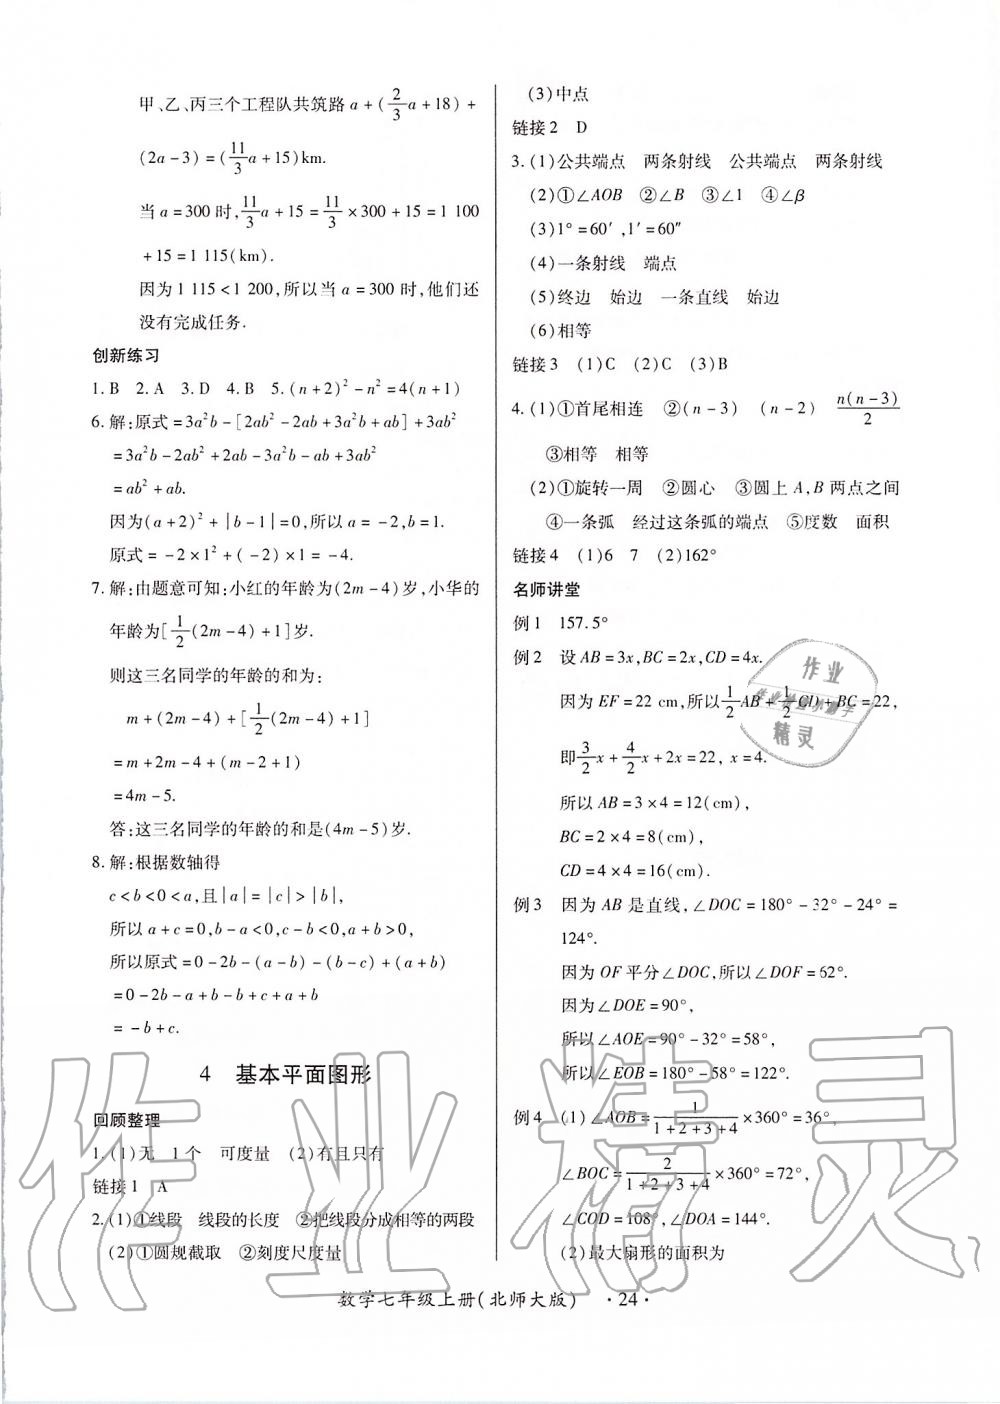 甲、乙、丙三个工程队共筑路 a+(2/3a+18)+
(2a-3)=(11/3a+15)km.
当 a=300 时,11/3a+15=11/3×300+15=1 100
+15=1 115(km).
因为 1 115<1 200,所以当 a=300 时,他们还
没有完成任务.
创新练习
1. B 2. A 3. D 4. B 5. (n+2)²-n²=4(n+1)
6. 解:原式=3a²b-[2ab²-2ab+3a²b+ab]+3ab²
=3a²b-2ab²+2ab-3a²b-ab+3ab²
=ab²+ab.
因为(a+2)²+|b-1|=0,所以 a=-2,b=1.
原式=-2×1²+(-2)×1=-4.
7. 解:由题意可知:小红的年龄为(2m-4)岁,小华的
年龄为[1/2(2m-4)+1]岁.
则这三名同学的年龄的和为:
m+(2m-4)+[1/2(2m-4)+1]
=m+2m-4+(m-2+1)
=4m-5.
答:这三名同学的年龄的和是(4m-5)岁.
8. 解:根据数轴得
c<b<0<a,且|a|=|c|>|b|,
所以 a+c=0,b-a<0,c-b<0,a+b>0,
所以原式=0-2b-(a-b)-(b-c)+(a+b)
=0-2b-a+b-b+c+a+b
=-b+c.
4 基本平面图形
回顾整理
1. (1)无 1个 可度量 (2)有且只有
链接1 A
2. (1)①线段 线段的长度 ②把线段分成相等的两段
(2)①圆规截取 ②刻度尺度量
(3)中点
链接2 D
3. (1)公共端点 两条射线 公共端点 两条射线
(2)①∠AOB ②∠B ③∠1 ④∠β
(3)1°=60′,1′=60″
(4)一条射线 端点
(5)终边 始边 一条直线 始边
(6)相等
链接3 (1)C (2)C (3)B
4. (1)①首尾相连 ②(n-3) (n-2) n(n-3)/2
③相等 相等
(2)①旋转一周 ②圆心 ③圆上 A,B 两点之间
④一条弧 经过这条弧的端点 ⑤度数 面积
链接4 (1)6 7 (2)162°
名师讲堂
例1 157.5°
例2 设 AB=3x,BC=2x,CD=4x.
因为 EF=22 cm,所以1/2AB+1/2CD+BC=22,
即3/2x+4/2x+2x=22, x=4.
所以 AB=3×4=12(cm),
BC=2×4=8(cm),
CD=4×4=16(cm).
例3 因为 AB 是直线,∠DOC=180°-32°-24°=
124°.
因为 OF 平分∠DOC,所以∠DOF=62°.
因为∠DOE=90°,
所以∠AOE=90°-32°=58°,
所以∠EOB=180°-58°=122°.
例4 (1)∠AOB=1/(1+2+3+4)×360°=36°,
∠BOC=2/(1+2+3+4)×360°=72°,
∠COD=108°,∠DOA=144°.
(2)最大扇形的面积为
数学七年级上册(北师大版) ·24·
作业
精灵
作业精灵